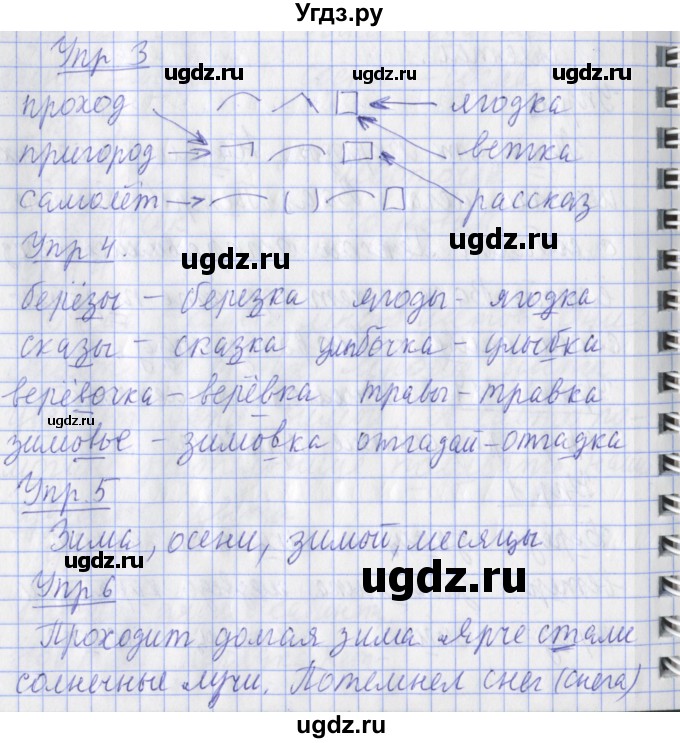 Угдз.ру
Упр 3
ugdz.ru ugdz.ru ugdz.ru
проход ягодка
пригород ветка
самолёт рассказ
Упр 4.
ugdz.ru ugdz.ru
берёзы – березка ягоды – ягодка
сказы – сказка улыбочка – улыбка
верёвочка – верёвка травы – травка
ugdz.ru
зимовье – зимовка отгадай – отгадка
Упр. 5
Зима, осени, зимой, месяцы
ugdz.ru ugdz.ru
Упр 6
Проходит долгая зима. Ярче стали
солнечные лучи. Потемнел снег (снега)
ugdz.ru